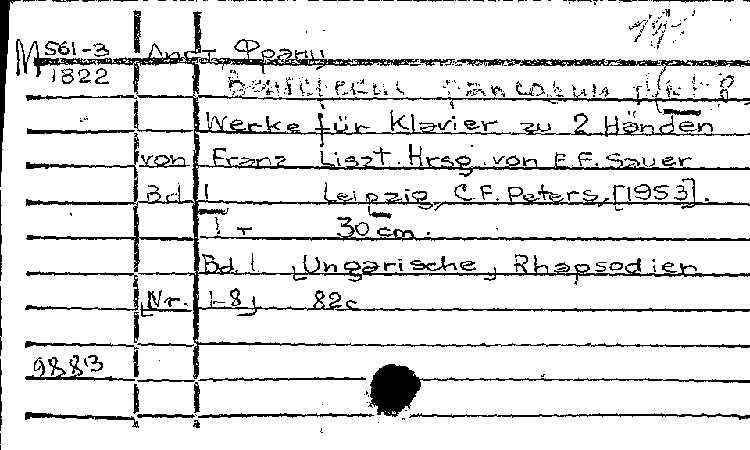 М 561-3 Лист, Франц
1822
Венгерские рапсодии №1-8
Werke für Klavier zu 2 Händen
von Franz Liszt. Hrsg. von E.F. Sauer
Bd 1 Leipzig, C.F. Peters, [1953].
1 т 30 cm.
Bd. 1 Ungarische Rhapsodien
[Nr. 1-8] 82с
9883